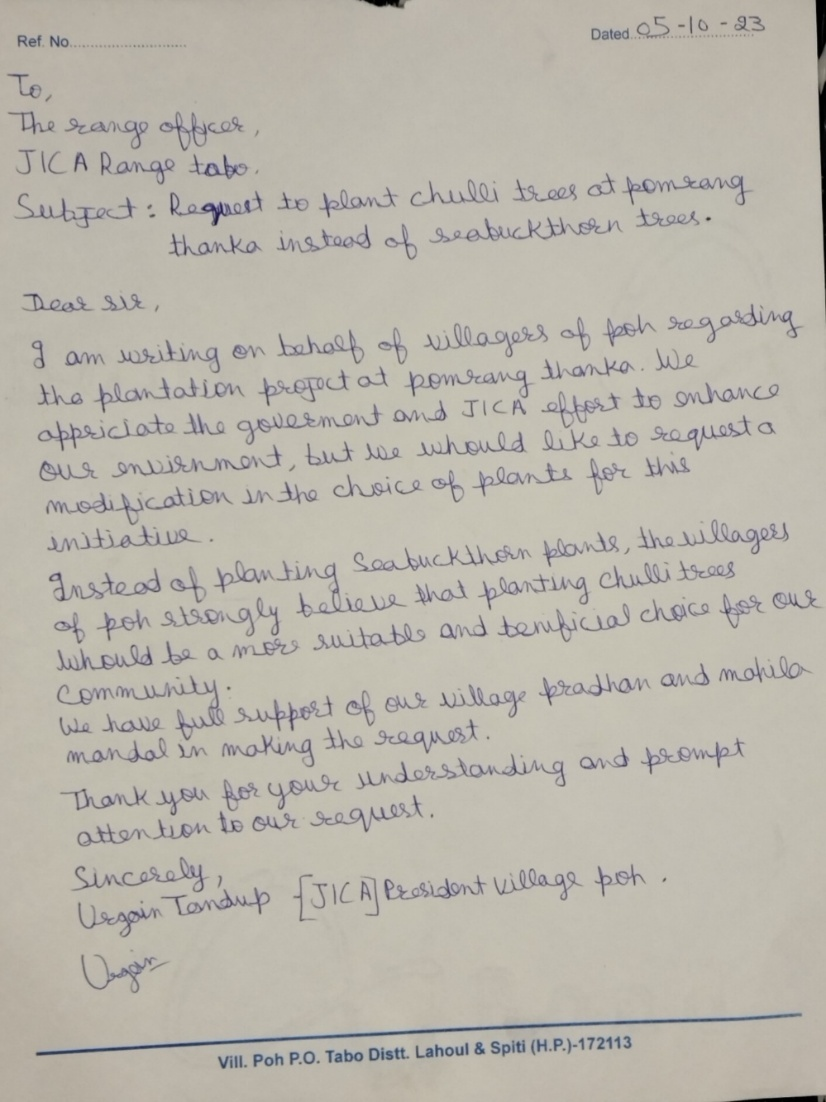 Ref. No..............................
Dated 05-10-23
To,
The range officer,
JICA Range tabo.
Subject: Request to plant chulli trees at pomrang
thanka instead of seabuckthorn trees.
Dear sir,
I am writing on behalf of villagers of poh regarding
the plantation project at pomrang thanka. We
appriciate the goverment and JICA effort to enhance
our envirnment, but we whould like to request a
modification in the choice of plants for this
initiative.
Instead of planting Seabuckthorn plants, the villagers
of poh strongly believe that planting chulli trees
whould be a more suitable and benificial choice for our
community.
We have full support of our village pradhan and mahila
mandal in making the request.
Thank you for your understanding and prompt
attention to our request.
Sincerely,
Urgain Tandup [JICA] President village poh.
Urgain
Vill. Poh P.O. Tabo Distt. Lahoul & Spiti (H.P.)-172113